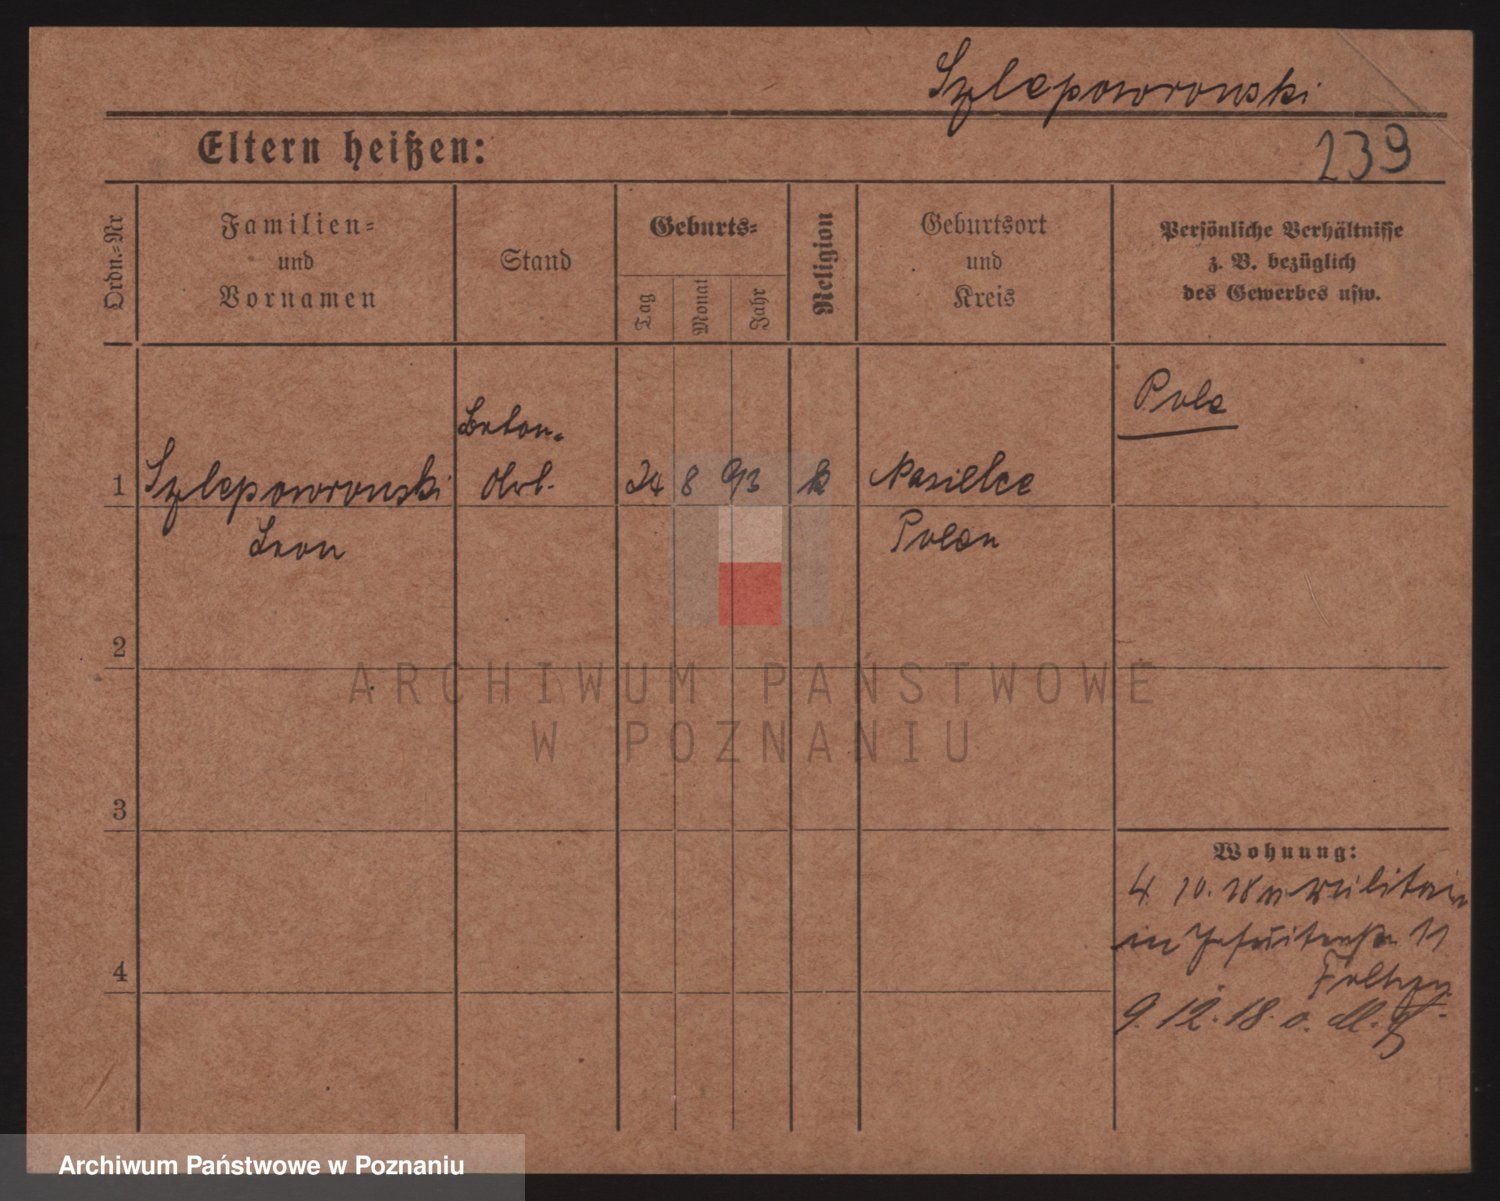 Szleporowski
239
Eltern heißen:
Ordn.-Nr
Familien-
und
Vornamen
Stand
Geburts-
Tag
Monat
Jahr
Religion
Geburtsort
und
Kreis
Persönliche Verhältnisse
z. B. bezüglich
des Gewerbes usw.
Pole
Beton-
1 Szleporowski Arb. 24 8 93 k Nasielce
Leon Polen
2
3
4
Wohnung:
4. 10. 18 Militair
in Jesuitenstr. 11
9. 12. 18. o.
ARCHIWUM PAŃSTWOWE
W POZNANIU
Archiwum Państwowe w Poznaniu